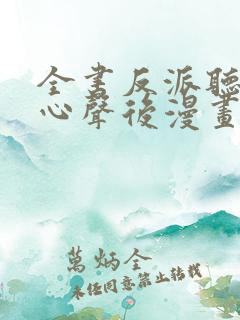 全書反派聽
心聲後漫畫
萬炳全
未经同意禁止转载